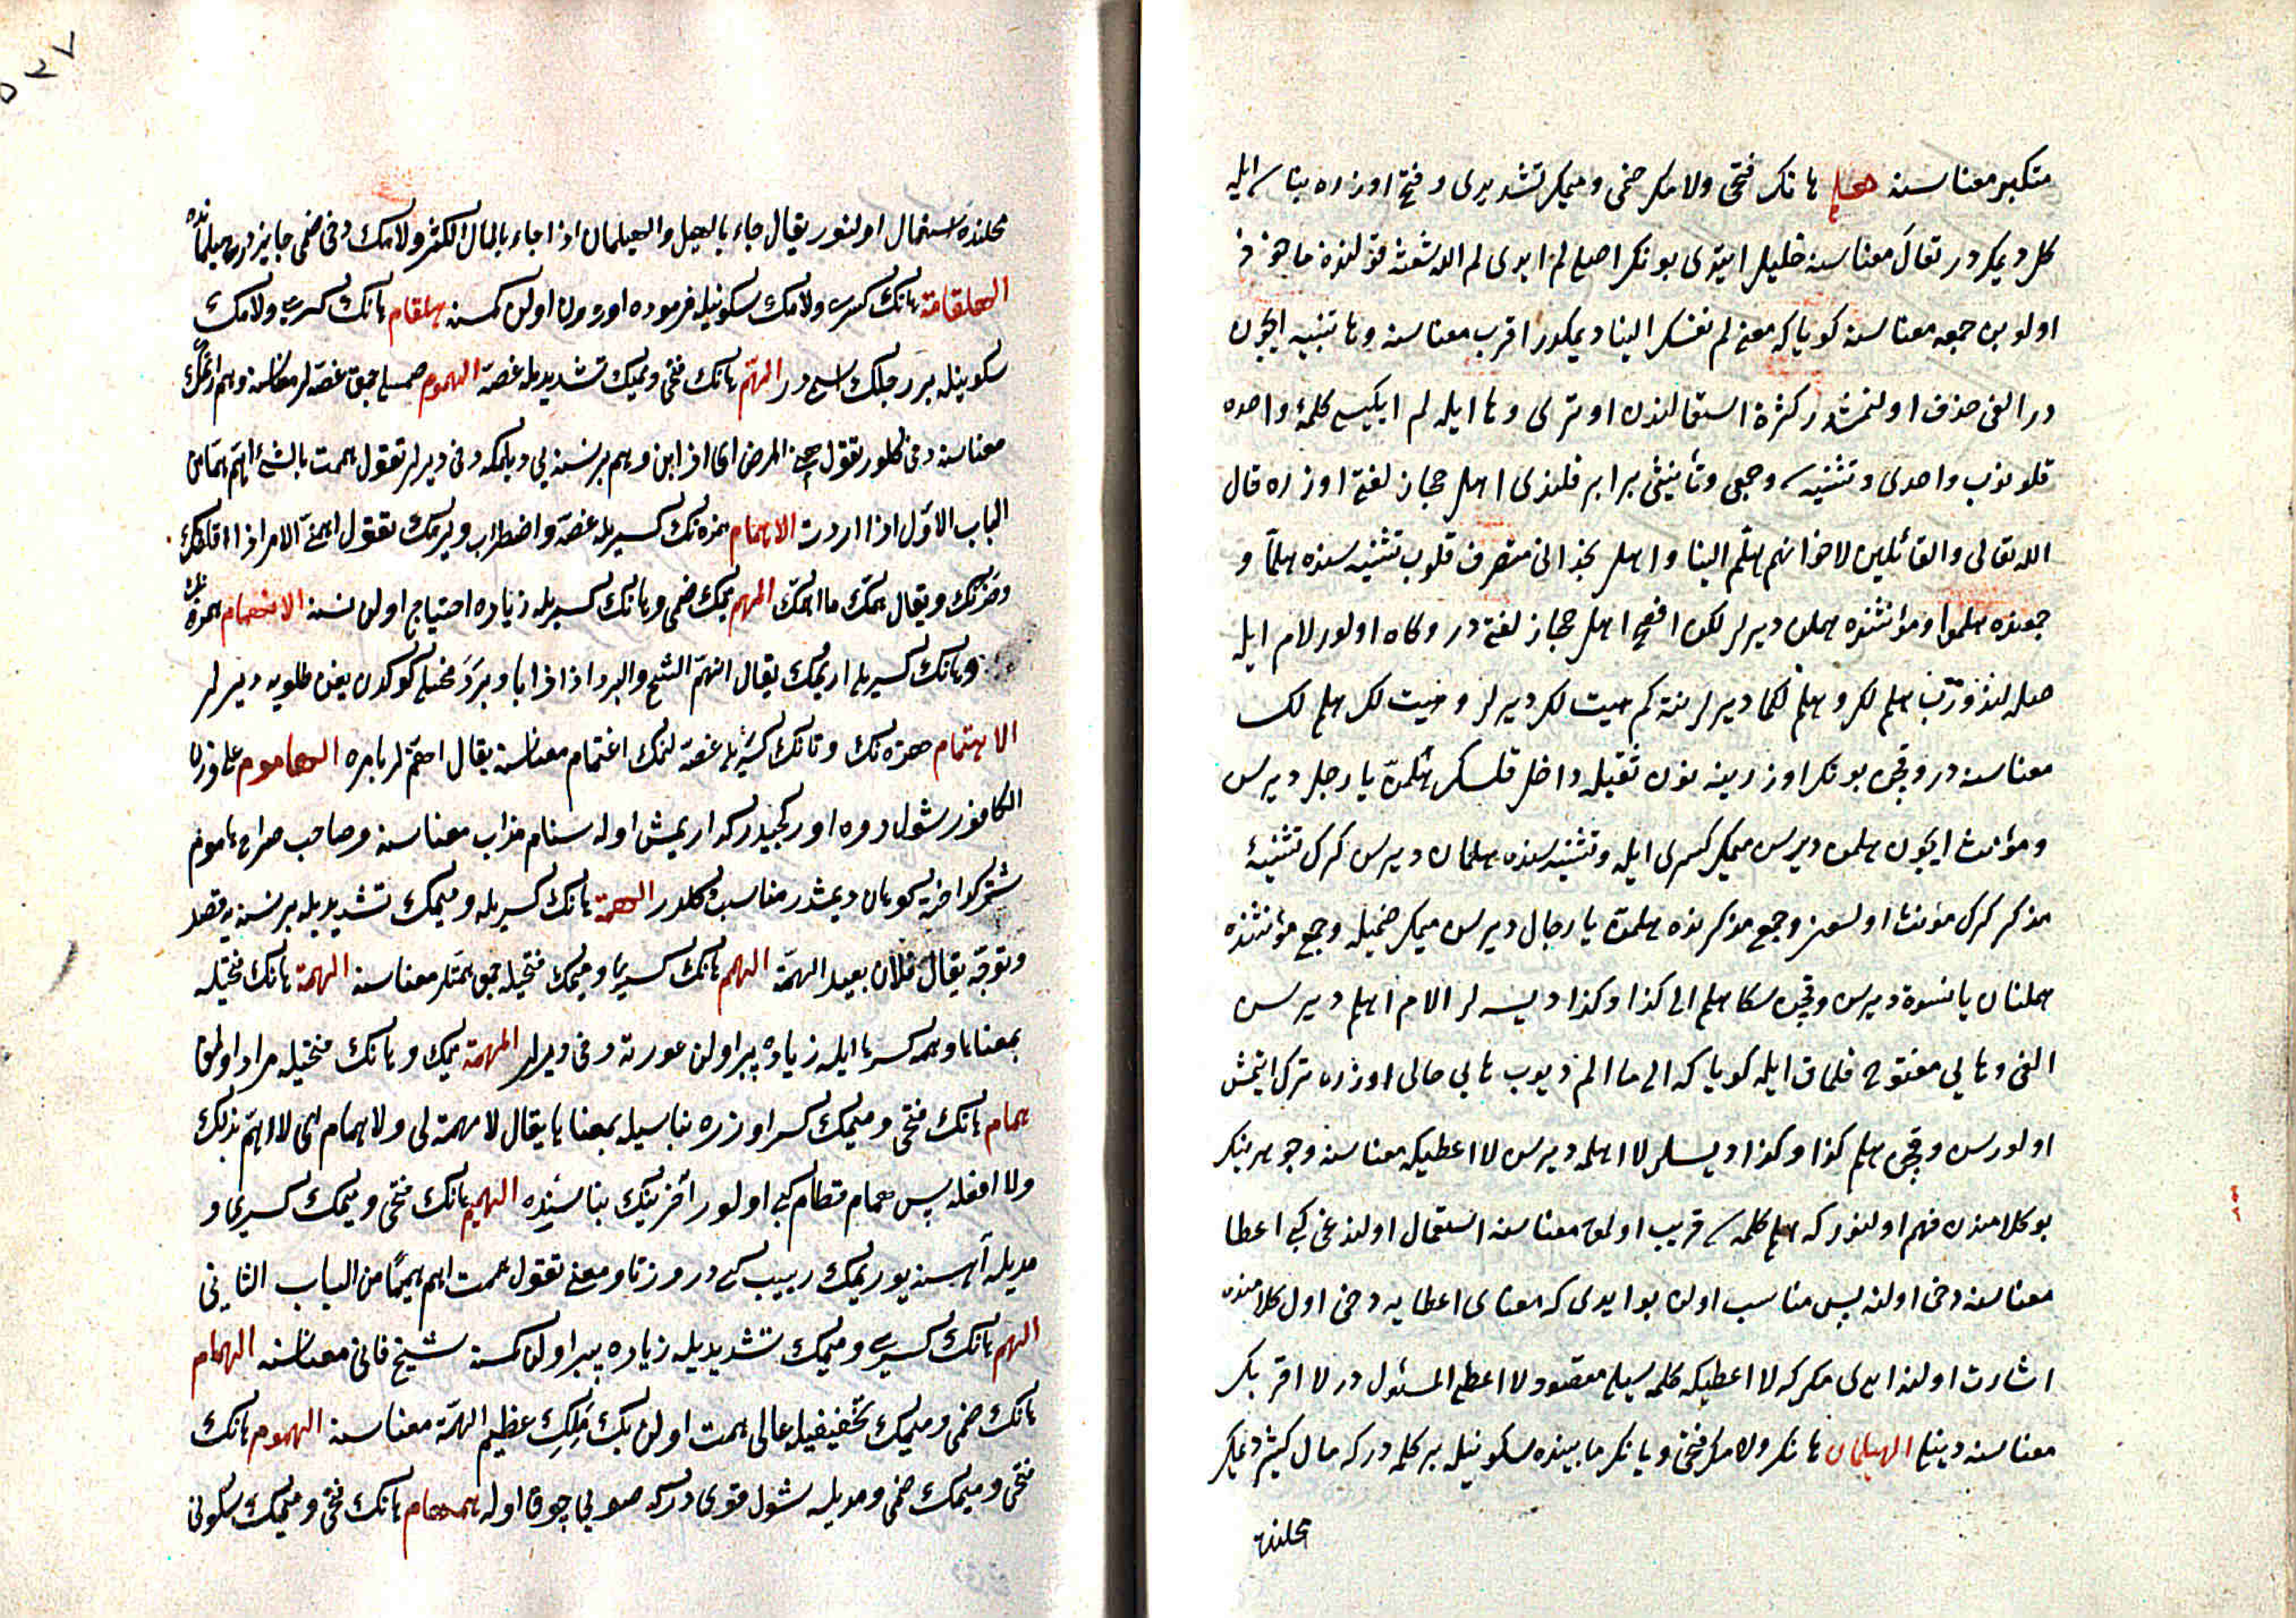 متكبر معناسنه هلم هانك فتحى ولامك ضمى وميمك تشديدى وفتح اوزره بناسى ايله
كل ديمكدر تعال معناسنه خليل ايتدى بونك اصلى لم ايدى لم الله شعثه قولندن ماخوذ
اولوب جمعه معناسنه كويا كه معنى لم نفسك الينا ديمكدر اقرب معناسنه وها تنبيه ايچون
در الفى حذف اولنمشدر كثرة استعمالندن اوترى وها ايله لم ايكيسى كلمهٔ واحده
قلنوب واحدى وتثنيه سى وجمعى وتأنيثى برابر قلندى اهل حجاز لغتى اوزره قال
الله تعالى والقائلين لاخوانهم هلم الينا واهل نجد انى متصرف قلوب تثنيه سنده هلما و
جمعنده هلموا ومؤنثنده هلمن ديرلر لكن افصح اهل حجاز لغتيدر وكاه اولور لام ايله
صله لنوب هلم لك وهلم لكما ديرلر نته كم هيت لك ديرلر وهيت لك هلم لك
معناسنه در وقچن بونك اوزرينه نون ثقيله داخل قلسك هلمن يا رجل ديرسن
ومؤنث ايچون هلمن ديرسن ميمك كسرى ايله وتثنيه سنده هلمان ديرسن كرك تثنيهٔ
مذكر كرك مؤنث اولسون وجمع مذكرنده هلمن يا رجال ديرسن ميمك ضميله وجمع مؤنثنده
هلمنان يا نسوة ديرسن وقچن سكا هلم الى كذا وكذا ديسه لر الام اهلم ديرسن
الفى وهايى مفتوح قلمق ايله كويا كه الى ما الم ديوب هايى حالى اوزره ترك ايتمش
اولورسن وقچن هلم كذا وكذا ديسلر لا اهلمه ديرسن لا اعطيكه معناسنه وجوهرينك
بو كلامندن فهم اولنور كه هلم كلمه سى قريب اولمق معناسنه استعمال اولندوغى كبى اعطا
معناسنه دخى اولنه پس مناسب اولان بو ايدى كه معناى اعطايه دخى اول كلامنده
اشارت اولنه ايدى مكر كه لا اعطيكه كلمه سيله مقصود لا اعطى المسئول در لا اقربك
معناسنه دينيله الهيلمان هانك ولامك فتحى ويانك مابينده سكونيله بر كلمه در كه مال كثير ديمك
محلنده
٥٢٧
محلنده استعمال اولنور يقال جاء بالهيل والهيلمان اذا جاء بالمال الكثير ولامك دخى ضمى جايزدر هيلماننده
الهلقامة هانك كسرى ولامك سكونيله فرموده اورون اولن كمسنه هلقام هانك كسرى ولامك
سكونيله بر رجلك اسمى در الهم هانك فتحى وميمك تشديديله غصه الهموم جمعى غصه لر معناسنه وهم ارتمك
معناسنه دخى كلور تقول همنى المرض اى اذابنى وهم بر نسنه يى ديلمكه دخى ديرلر تقول هممت بالشئ اهم هما من
الباب الاول اذا اردت الاهمام همزه نك كسريله غصه واضطراب ويرمك تقول اهمنى الامر اذا اقلقك
وحزنك ويقال همك ما اهمك المهم ميمك ضمى وهانك كسريله زياده احتياج اولن نسنه الانهمام همزه نك
وهانك كسريله اريمك يقال انهم الشحم والبرد اذا ذابا وبرد فتحيله كوكدن يغن طلويه ديرلر
الاهتمام همزه نك وتانك كسريله غصه لنمك اغتمام معناسنه يقال اهتم له بامره الهاموم على وزن
الكافور شول دوه اوركجيدر كه اريمش اوله سنام مذاب معناسنه وصاحب صراح هاموم
شتر كداخته كوهان ديمشدر مناسب كلدر الهمة هانك كسريله وميمك تشديديله بر نسنه يه قصد
وتوجه يقال فلان بعيد الهمة الهمم هانك كسرى وميمك فتحيله جمعى همتلر معناسنه الهمة هانك فتحيله
بمعناها وهمه كسرها ايله زياده پير اولن عورته دخى ديرلر المهمة ميمك وهانك فتحيله مراد اولمق
همام هانك فتحى وميمك كسر اوزره بناسيله بمعناها يقال لا مهمة لى ولا همام اى لا اهم بذلك
ولا افعله پس همام قطام كبى اولور آخرينك بناسنده الهميم هانك فتحى وميمك كسرى و
مديله آهسته يوريمك ربيب كبى در وزنا ومعنى تقول هممت اهم هميما من الباب الثانى
الهم هانك كسرى وميمك تشديديله زياده پير اولن كمسنه شيخ فانى معناسنه الهمام
هانك ضمى وميمك تخفيفيله عالى همت اولن بك ملك عظيم الهمة معناسنه الهموم هانك
فتحى وميمك ضمى ومديله شول قوى در كه صويى چوق اوله همهام هانك فتحى وميمك سكونى